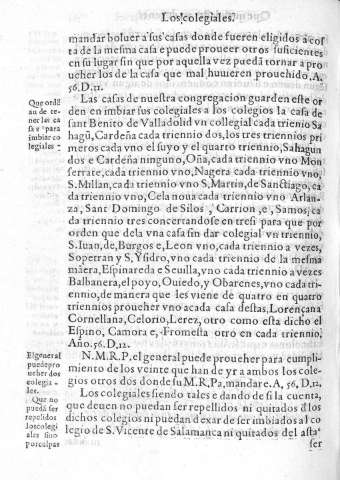 Los colegiales.
mandar boluer a sus casas donde fueren eligidos a cos
ta de la mesma casa e puede proueer otros suficientes
en su lugar sin que por aquella vez pueda tornar a pro
ueher los de la casa que mal huuieren prouehido. A,
56.D.12.
Que ordē
an de te-
ner las ca
sas e para
imbiar co
legiales
Las casas de nuestra congregacion guarden este or
den en imbiar sus colegiales a los colegios la casa de
sant Benito de Valladolid vn collegial cada trienio Sa
hagū, Cardeña cada triennio dos, los tres triennios pri
meros cada vno el suyo y el quarto triennio, Sahagun
dos e Cardeña ninguno, Oña, cada triennio vno Mon
serrate, cada triennio vno, Nagera cada triennio vno,
S. Millan, cada triennio vno S, Martin, de Sanctiago, ca
da triennio vno, Cela noua cada triennio vno Arlan-
za, Sant Domingo de Silos, Carrion, e, Samos, ca
da triennio tres concertandose en tresi para que por
orden que dela vna casa sin dar colegial vn triennio,
S. Iuan, de, Burgos e, Leon vno, cada triennio a vezes,
Soperran y S, Ysidro, vno cada triennio de la mesma
māera, Espinareda e Seuilla, vno cada triennio a vezes
Balbanera, el poyo, Ouiedo, y Obarenes, vno cada tri-
ennio, de manera que les viene de quatro en quatro
triennios prouehер vno acada casa destas, Lorençana
Cornellana, Celorio, Lerez, otro como esta dicho el
Espino, Camora e, Fromesta otro en cada triennio,
Año. 56. D, 12.
El general
puede pro
ueher dos
colegia-
les.
N. M. R. P. el general puede proueher para cumpli-
miento de los veinte que han de yr a ambos los cole-
gios otros dos donde su M. R, Pa, mandare. A, 56, D, 12,
Que no
pueda ser
repellidos
los colegi
ales sino
por culpas
Los colegiales siendo tales e dando de si la cuenta,
que deuen no puedan ser repellidos ni quitados d los
dichos colegios ni puedan dexar de ser imbiados al co
legio de S. Vicente de Salamanca ni quitados del asta
ser